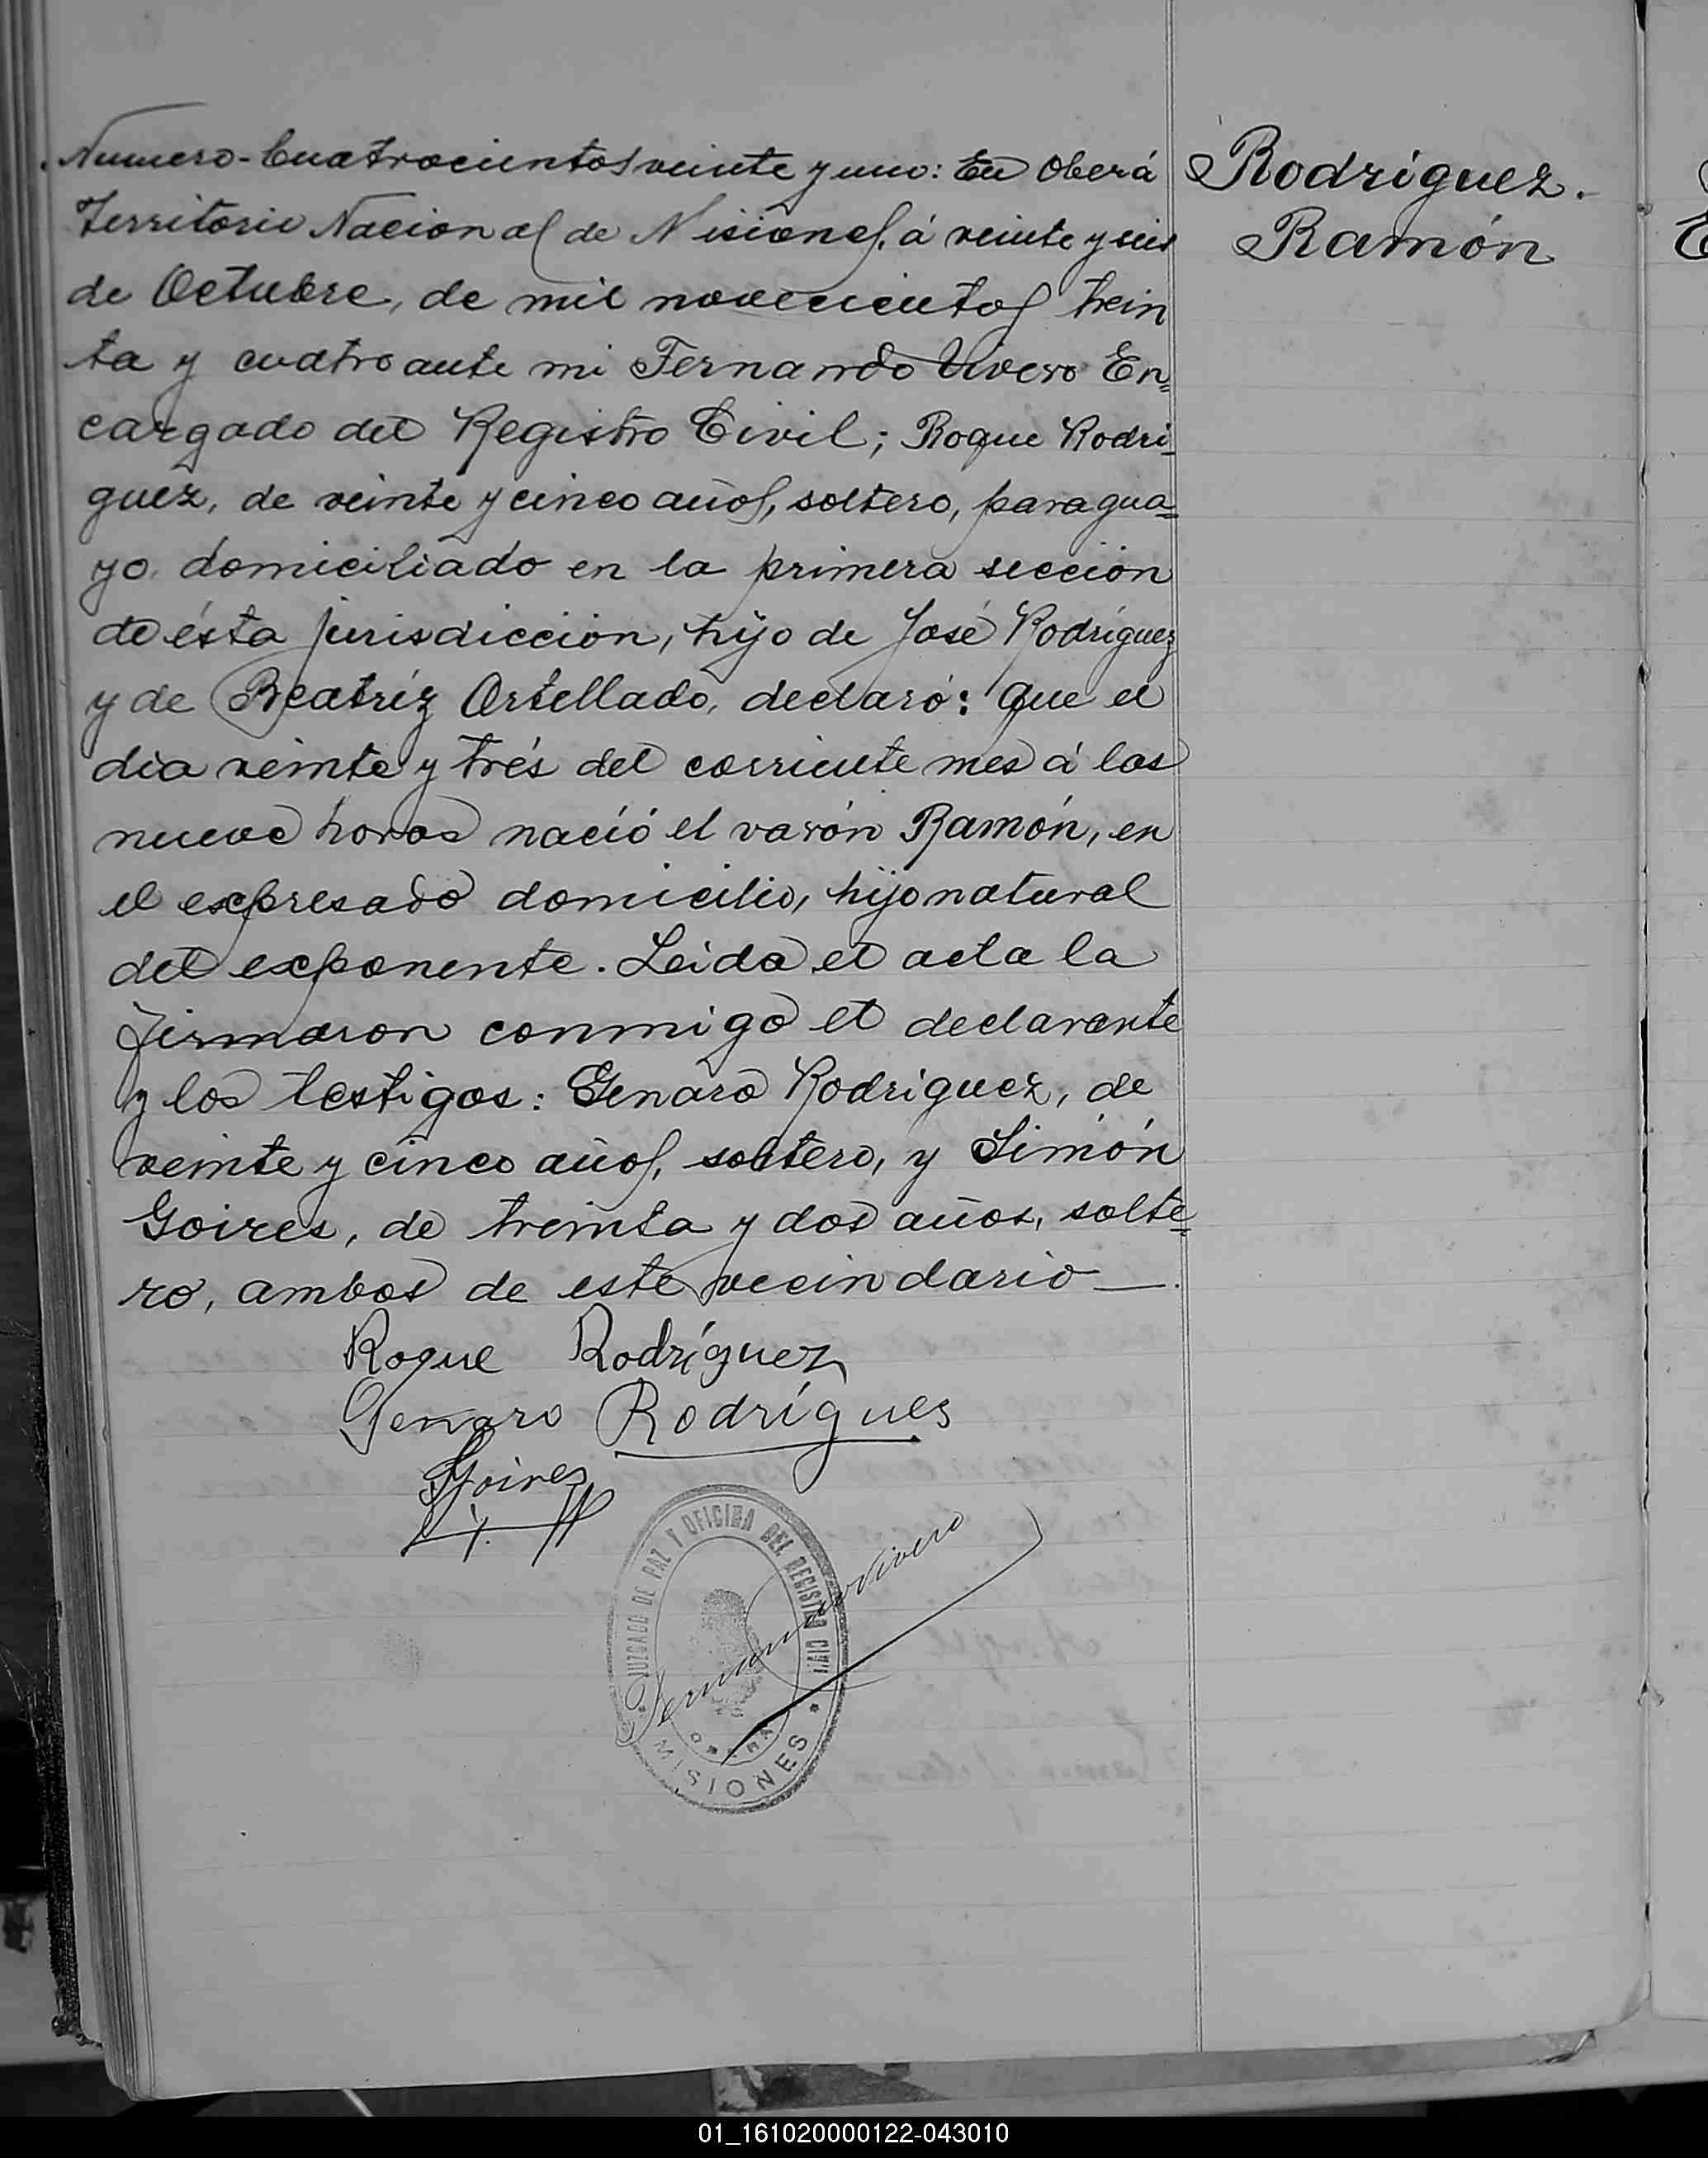 Numero-Cuatrocientos veinte y uno: En Oberá
Territorio Nacional de Misiones, á veinte y seis
de Octubre, de mil novecientos trein
ta y cuatro ante mi Fernando Vivero En=
cargado del Registro Civil; Roque Rodri=
guez, de veinte y cinco años, soltero, paragua=
yo domiciliado en la primera sección
de ésta jurisdicción, hijo de José Rodríguez
y de Beatríz Ortellado, declaró: que el
dia veinte y trés del corriente mes á las
nueve horas nació el varón Ramón, en
el expresado domicilio, hijo natural
del exponente. Leida el acta la
firmaron conmigo el declarante
y los testigos: Genaro Rodriguez, de
veinte y cinco años, soltero, y Simón
Goires, de treinta y dos años, solte=
ro, ambos de este vecindario—.
Rodríguez.
Ramón
Roque Rodríguez
Genaro Rodrígues
SGoires
JUZGADO DE PAZ Y OFICINA DEL REGISTRO CIVIL
OBERÁ
* MISIONES *
Fernando Vivero
01_161020000122-043010